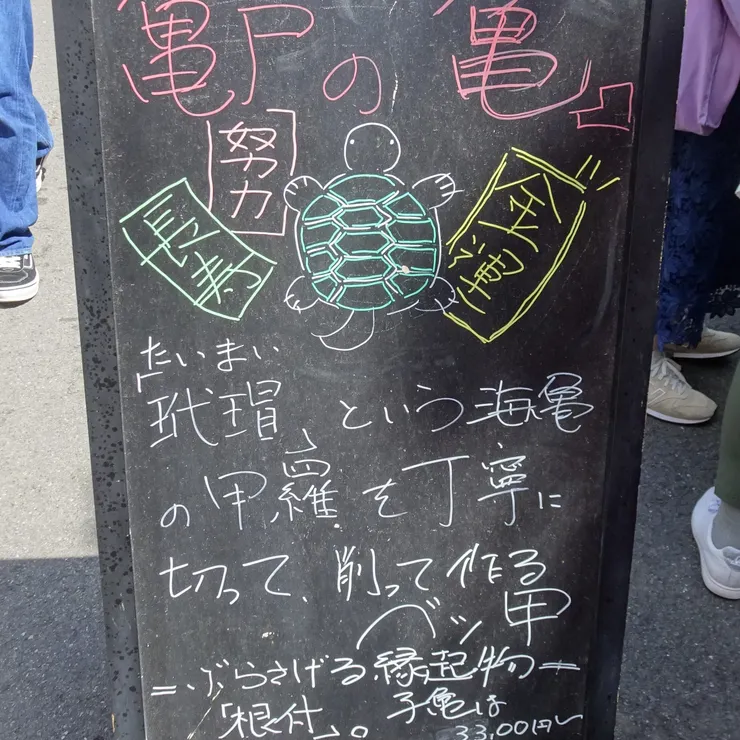 亀戸の亀」
努力
長寿
金満
たいまい
「玳瑁」という海亀
の甲羅を丁寧に
切って、削って作る
ベッ甲
=ぶらさげる縁起物=
「根付」。子亀は
33,00円〜